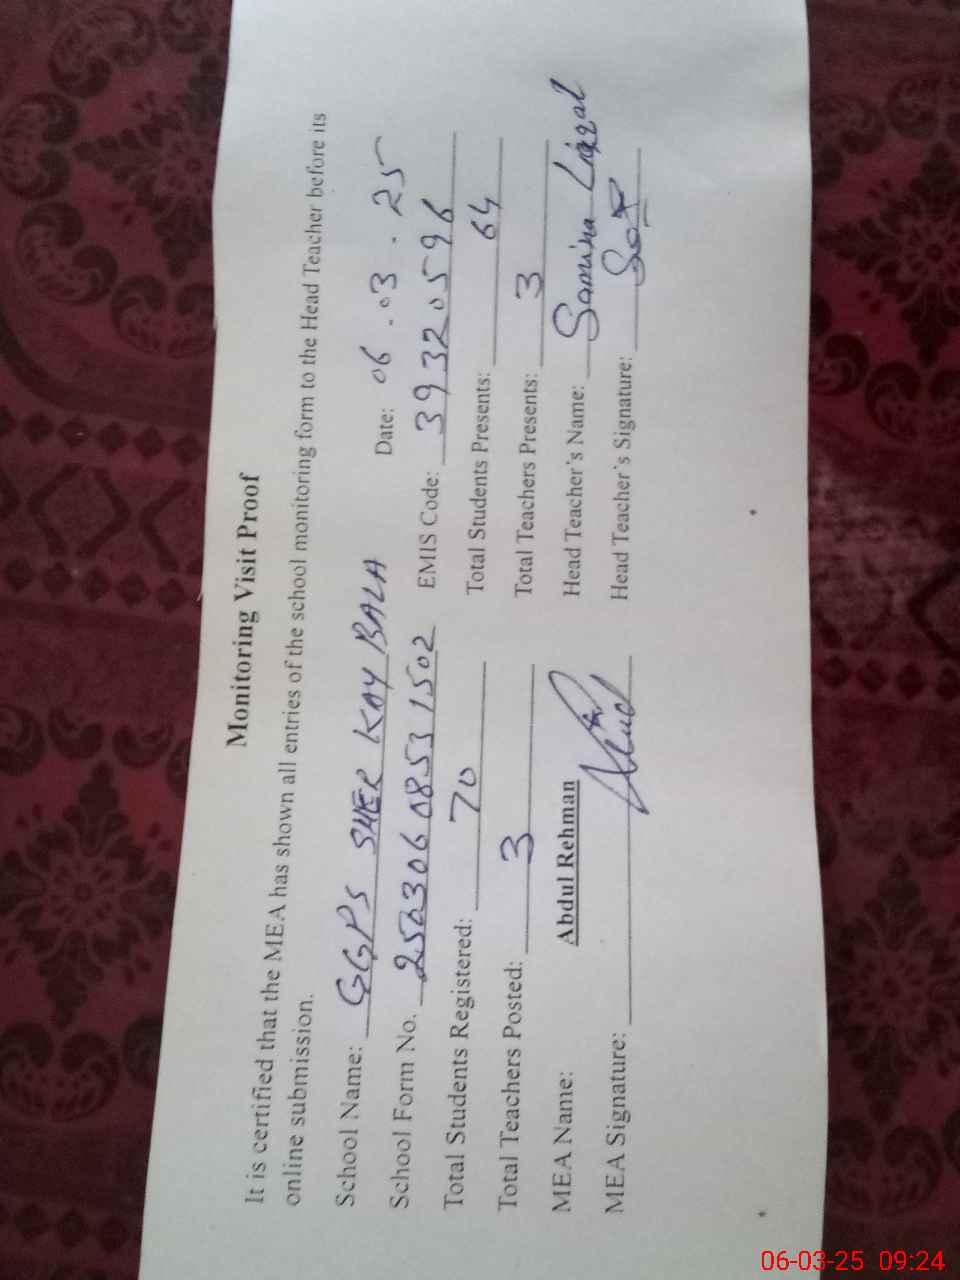 Monitoring Visit Proof
It is certified that the MEA has shown all entries of the school monitoring form to the Head Teacher before its
online submission.
School Name: GGPS SHER KAY BALA Date: 06-03-25
School Form No. 2503060853 1502 EMIS Code: 39320596
Total Students Registered: 70 Total Students Presents: 64
Total Teachers Posted: 3 Total Teachers Presents: 3
MEA Name: Abdul Rehman Head Teacher's Name: Samina
MEA Signature: Head Teacher's Signature:
06-03-25 09:24